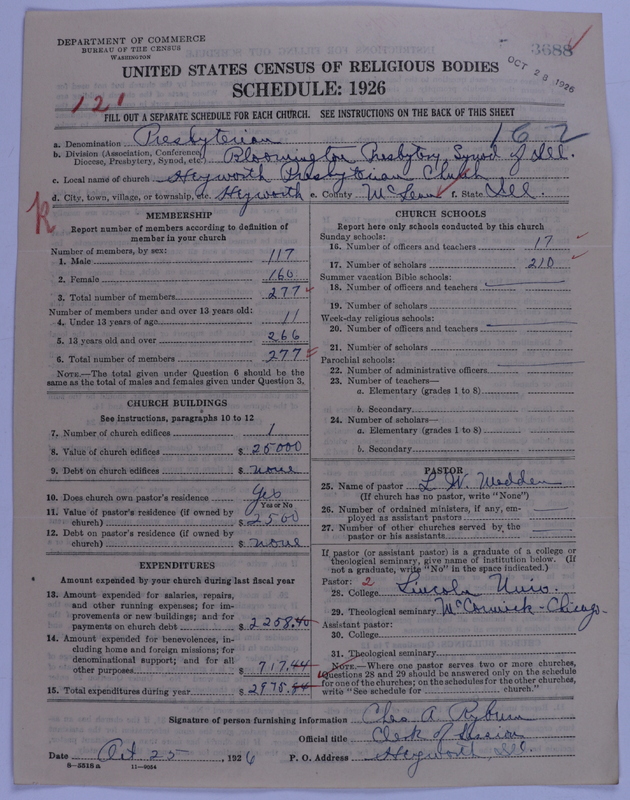 DEPARTMENT OF COMMERCE
BUREAU OF THE CENSUS
WASHINGTON
3688
OCT 28 1926
UNITED STATES CENSUS OF RELIGIOUS BODIES
SCHEDULE: 1926
121
FILL OUT A SEPARATE SCHEDULE FOR EACH CHURCH. SEE INSTRUCTIONS ON THE BACK OF THIS SHEET
162
a. Denomination Presbyterian
b. Division (Association, Conference, Diocese, Presbytery, Synod, etc.) Bloomington Presbytery, Synod of Ill.
c. Local name of church Heyworth Presbyterian Church
d. City, town, village, or township, etc. Heyworth e. County McLean f. State Ill.
MEMBERSHIP
Report number of members according to definition of
member in your church
Number of members, by sex:
1. Male 117
2. Female 160
3. Total number of members 277
Number of members under and over 13 years old:
4. Under 13 years of age 11
5. 13 years old and over 266
6. Total number of members 277
NOTE.—The total given under Question 6 should be the
same as the total of males and females given under Question 3.
CHURCH BUILDINGS
See instructions, paragraphs 10 to 12
7. Number of church edifices 1
8. Value of church edifices $ 25000
9. Debt on church edifices $ none
10. Does church own pastor's residence Yes
Yes or No
11. Value of pastor's residence (if owned by
church) $ 2500
12. Debt on pastor's residence (if owned by
church) $ none
EXPENDITURES
Amount expended by your church during last fiscal year
13. Amount expended for salaries, repairs,
and other running expenses; for im-
provements or new buildings; and for
payments on church debt $ 2258.40
14. Amount expended for benevolences, in-
cluding home and foreign missions; for
denominational support; and for all
other purposes $ 717.44
15. Total expenditures during year $ 2975.84
CHURCH SCHOOLS
Report here only schools conducted by this church
Sunday schools:
16. Number of officers and teachers 17
17. Number of scholars 210
Summer vacation Bible schools:
18. Number of officers and teachers
19. Number of scholars
Week-day religious schools:
20. Number of officers and teachers
21. Number of scholars
Parochial schools:
22. Number of administrative officers
23. Number of teachers—
a. Elementary (grades 1 to 8)
b. Secondary
24. Number of scholars—
a. Elementary (grades 1 to 8)
b. Secondary
PASTOR
25. Name of pastor L. W. Madden
(If church has no pastor, write "None")
26. Number of ordained ministers, if any, em-
ployed as assistant pastors
27. Number of other churches served by the
pastor or his assistants
If pastor (or assistant pastor) is a graduate of a college or
theological seminary, give name of institution below. (If
not a graduate, write "No" in the space indicated.)
Pastor: 2
28. College Lincoln Univ.
29. Theological seminary McCormick-Chicago
Assistant pastor:
30. College
31. Theological seminary
NOTE.—Where one pastor serves two or more churches,
Questions 28 and 29 should be answered only on the schedule
for one of the churches; on the schedules for the other churches,
write "See schedule for church."
Signature of person furnishing information Chas A. Ryburn
Official title Clerk of Session
Date Oct 25, 1926 P. O. Address Heyworth, Ill.
8—5518a 11—9054